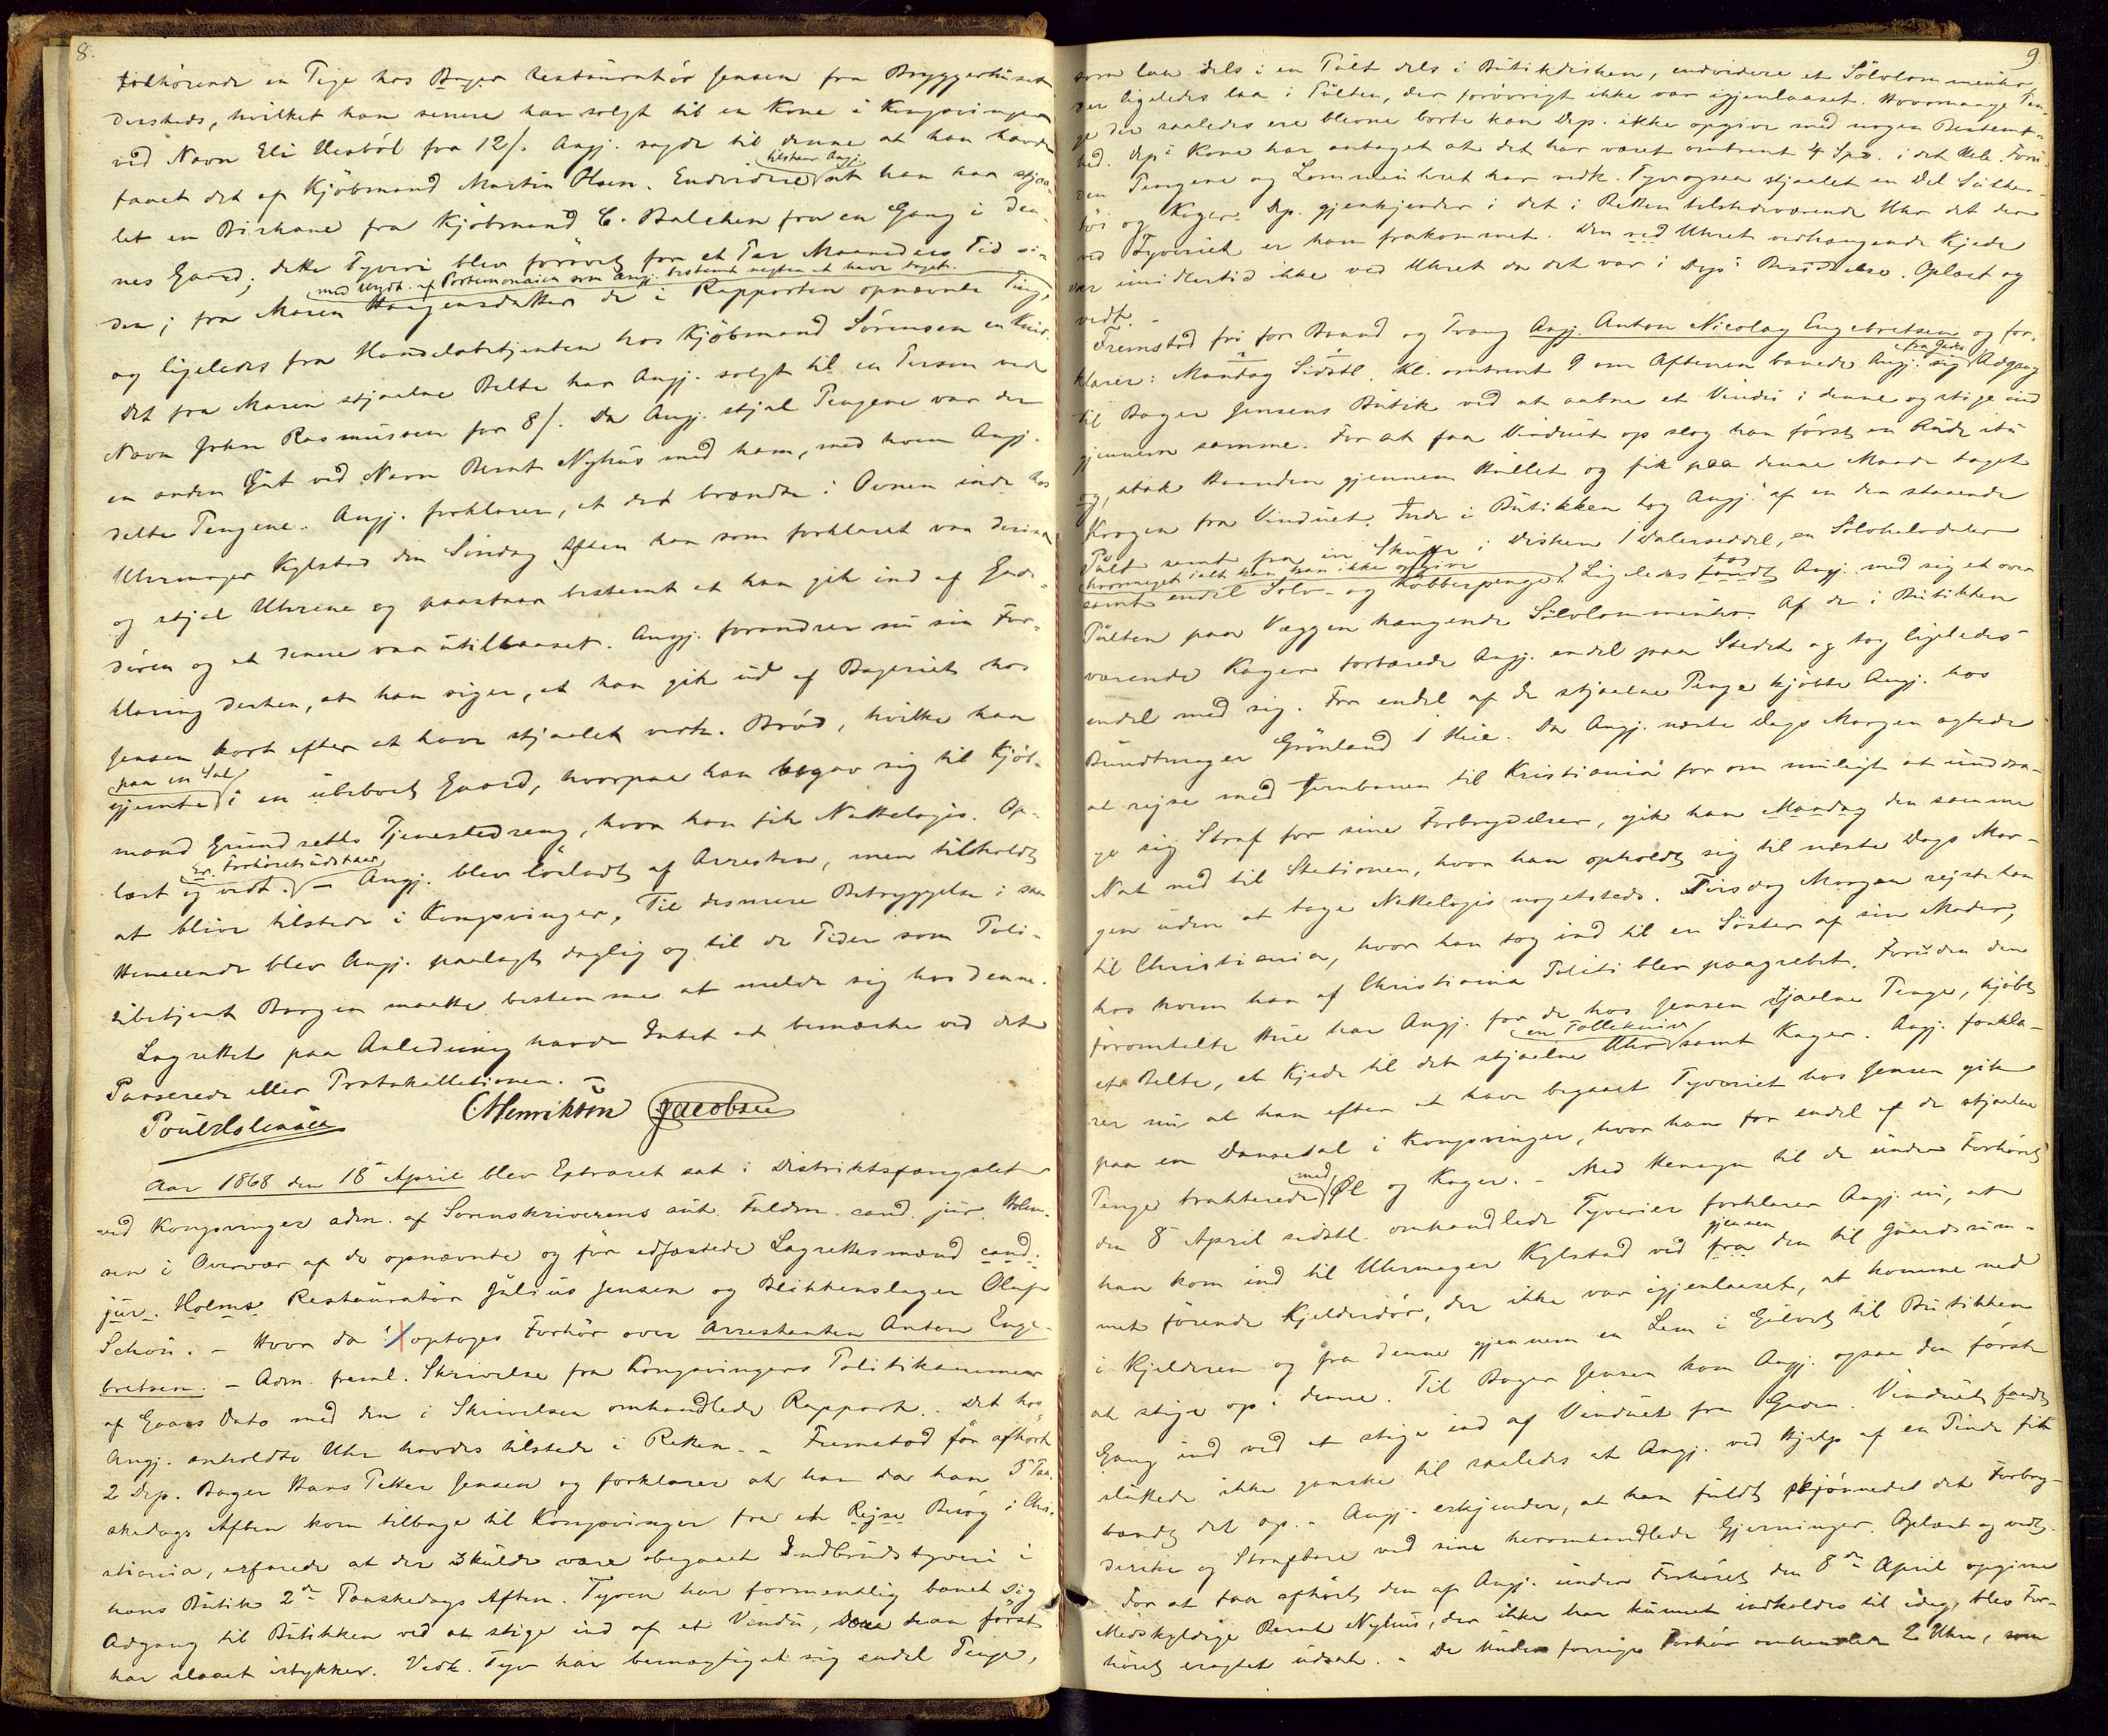 8.
tilhörende en Pige hos Bager Restauratör Jensen fra Bryggerhuset
dersteds, hvilket han senere har solgt til en Kone i Kongsvinger
ved Navn Eli for 12 /. Angj. sagde til denne at han havde
faaet det af Kjöbmand Martin Olsen. Endvidere tilstaar Angj. at han har stjaa-
let en Birhane fra Kjöbmand C. Balchen fra en Gang i den-
nes Gaard; dette Tyveri blev forövet for et Par Maaneders Tid si-
den; fra Maren Haagensdatter med Undt. af Portemonaien som Angj. bestemt negter at have taget. de i Rapporten opnævnte Ting,
og ligeledes fra Handelsbetjenten hos Kjöbmand Sörensen en Kniv.
Det fra Maren stjaalne Belte har Angj. solgt til en Person ved
Navn Johan Rasmussen for 8 /. Da Angj. stjal Pengene var der
en anden Gut ved Navn Bernt Nyhus med ham, med hvem Angj.
delte Pengene. Angj. forklarer, at det brændte i Ovnen inde hos
Uhrmager Kylstad den Söndag Aften han som forklaret var derinde
og stjal Uhrene og paastaar bestemt at han gik ind af Gade-
dören og at denne var utillaaset. Angj. forandrer nu sin For-
klaring derhen, at han siger, at han gik ud af Bageriet hos
Jensen kort efter at have stjaalet vedk. Bröd, hvilke han
gjemte paa en Sal i en ubeboet Gaard, hvorpaa han begav sig til Kjöb-
mand Grundsetts Tjenestedreng, hvor han fik Nattelogis. Op-
læst og vedt. Ex. Forhöret udstaar – Angj. blev lösladt af Arresten, men tilholdt
at blive tilstede i Kongsvinger, Til desmere Betryggelse i saa
Henseende blev Angj. paalagt daglig og til de Tider som Poli-
tibetjent Borgen maatte bestemme at melde sig hos denne.
Lagrettet paa Anledning havde Intet at bemærke ved det
Passerede eller Protokollationen. –
Poul Holmsen CHenriksen Jacobsen
Aar 1868 den 18de April blev Extraret sat i Distriktsfængslet
ved Kongsvinger adm. af Sorenskriverens aut. Fuldm. cand. jur. Holm-
sen i Overvær af de opnævnte og för edfæstede Lagrettesmænd cand.
jur. Holms Restauratör Julius Jensen og Blikkenslager Oluf
Schou. – Hvor da optoges Forhör over Arrestanten Anton Enge-
bretsen. – Adm. freml. Skrivelse fra Kongsvingers Politikammer
af Gaars Dato med den i Skrivelsen omhandlede Rapport. Det hos
Angj. anholdte Uhr havdes tilstede i Retten. – Fremstod för afhört
2 Dep. Bager Hans Petter Jensen og forklarer at han da han 3die Paa-
skedags Aften kom tilbage til Kongsvinger fra et Rejse Besög i Chri-
stiania, erfarede at der skulde være begaaet Indbrudstyveri i
hans Butik 2den Paaskedags Aften. Tyven har formentlig banet sig
Adgang til Butikken ved at stige ind af et Vindu, som han först
har slaaet istykker. Vedk. Tyv har bemægtiget sig endel Penge,
9
som laa dels i en Pult dels i Butikdisken, endvidere et Sölvlommeuhr,
der ligeledes laa i Pulten, der forövrigt ikke var igjenlaaset. Hvormange Pen-
ge der saaledes ere blevne borte kan Dep. ikke opgive med nogen Bestemt-
hed. Dep's Kone har antaget at det har været omtrent 4 Spd. i det Hele. Foru-
den Pengene og Lommeuhret har vedk. Tyv ogsaa stjaalet en Del Sukker-
töi og Kager. Dep. gjenkjender i det i Retten tilstedeværende Uhr det der
ved Tyveriet er ham frakommet. Den ved Uhret vedhængende Kjede
var imidlertid ikke ved Uhret da det var i Dep's Besiddelse. Oplæst og
vedt. –
Fremstod fri for Baand og Tvang Angj. Anton Nicolay Engebretsen og for-
klarer: Mandag Sidstl. Kl. omtrent 9 om Aftenen banede Angj. sig fra Gaden Adgang
til Bager Jensens Butik ved at aabne et Vindu i denne og stige ind
gjennem samme. For at faa Vinduet op slog han först en Rude itu
og, stak Haanden gjennem Hullet og fik paa denne Maade taget
Krogen fra Vinduet. Inde i Butikken tog Angj. af en der staaende
Pult samt fra en Skuffe i Disken 1 Dalerseddel, en Sölvhelvdaler
samt endel Sölv- og Kobberpenge hvormeget ialt kan han ikke opgive. Ligeledes fandt tog Angj. med sig et over
Pulten paa Væggen hængende Sölvlommeuhr. Af de i Butikken
værende Kager fortærede Angj. endel paa Stedet og tog ligeledes
endel med sig. For endel af de stjaalne Penge kjöbte Angj. hos
Bundtmager Grönland 1 Hue. Da Angj. næste Dags Morgen agtede
at rejse med Jernbanen til Kristiania for om muligt at unddra-
ge sig Straf for sine Forbrydelser, gik han Mandag den samme
Nat ned til Stationen, hvor han opholdt sig til næste Dags Mor-
gen uden at tage Nattelogis nogetsteds. Tirsdag Morgen rejste han
til Christiania, hvor han tog ind til en Söster af sin Moder,
hos hvem han af Christiania Politi blev paagrebet. Foruden den
föromtalte Hue har Angj. for de hos Jensen stjaalne Penge, kjöbt
et Belte, et Kjede til det stjaalne Uhr en Tollekniv samt Kager. Angj. forkla-
rer nu at han efter at have begaaet Tyveriet hos Jensen gik
paa en Dansesal i Kongsvinger, hvor han for endel af de stjaalne
Penge trakterede med Öl og Kager. – Med Hensyn til de under Forhöret
den 8de April sidstl. omhandlede Tyverier forklarer Angj. nu, at
han kom ind til Uhrmager Kylstad ved fra gjennem den til Gaardsrum-
met förende Kjelderdör, der ikke var igjenlaaset, at komme ned
i Kjelderen og fra denne gjennem en Lem i Gulvet til Butikken
at stige op i denne. Til Bager Jensen kom Angj. ogsaa den förste
Gang ind ved at stige ind af Vinduet fra Gaden. Vinduet fandt
sluttede ikke ganske til saaledes at Angj. ved Hjelp af en Pinde fik
vendt det op. – Angj. erkjender, at han fuldt skjönnede det Forbry-
deriske og Strafbare ved sine heromhandlede Gjerninger. Oplæst og vedt.
For at faa afhört den af Angj. under Forhöret den 8de April opgivne
Medskyldige Bernt Nyhus, der ikke har kunnet indkaldes til idag, blev For-
höret eragtet udsat. – De under forrige Forhör omhandlede 2 Uhre, som